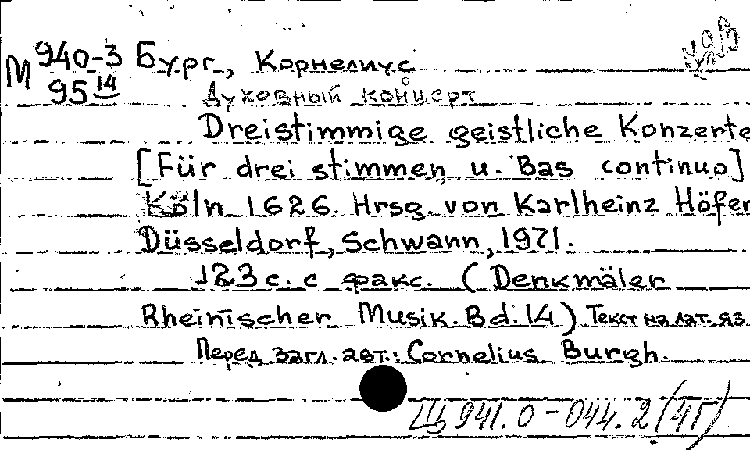 М 940-3 Бург, Корнелиус
95 14 Духовный концерт
Dreistimmige geistliche Konzerte
[Für drei stimmen u. Bas continuo]
Köln 1626. Hrsg. von Karlheinz Höfer
Düsseldorf, Schwann, 1971.
123 с. с факс. (Denkmäler
Rheinischer Musik. Bd. 14) Текст на лат. яз.
Перед загл. авт.: Cornelius Burgh.
ЦБ 941.0-044.2(4Г)